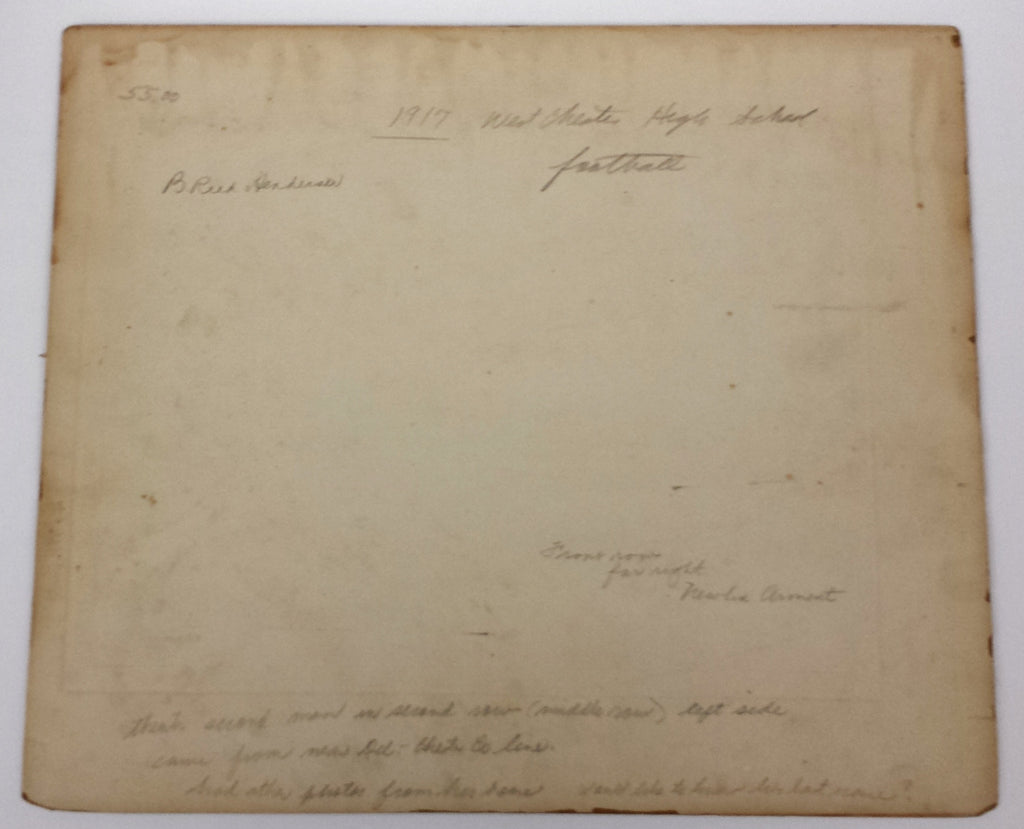 55.00
1917 West Chester High School
football
B Reed Henderson
Front row
far right
Newlin Arment
think second man in second row (middle row) left side
came from near Del-Chester Co line.
had other photos from his home would like to know his last name?